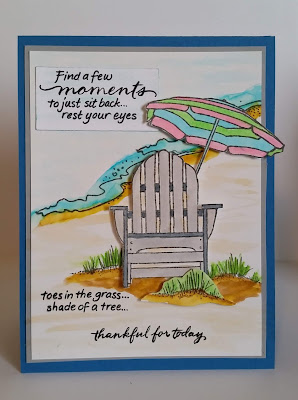 Find a few
moments
to just sit back...
rest your eyes
toes in the grass...
shade of a tree...
thankful for today.